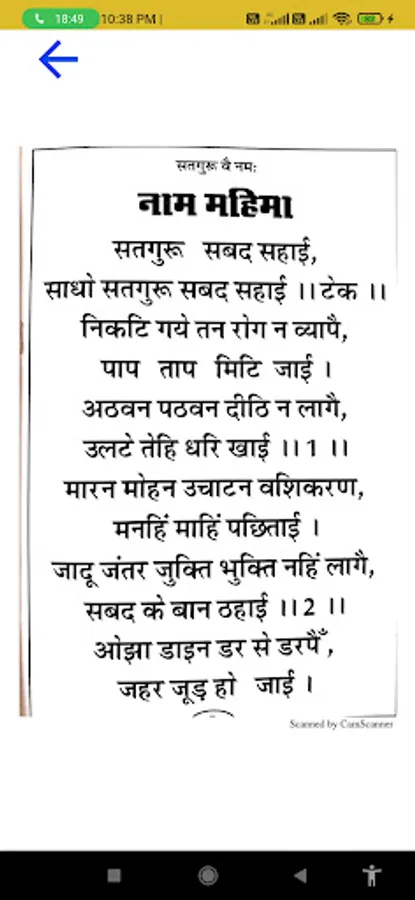 18:49 10:38 PM |
सतगुरू वै नमः
नाम महिमा
सतगुरू सबद सहाई,
साधो सतगुरू सबद सहाई ।।टेक ।।
निकटि गये तन रोग न व्यापै,
पाप ताप मिटि जाई ।
अठवन पठवन दीठि न लागै,
उलटे तेहि धरि खाई ।।1 ।।
मारन मोहन उचाटन वशिकरण,
मनहिं माहिं पछिताई ।
जादू जंतर जुक्ति भुक्ति नहिं लागै,
सबद के बान ठहाई ।।2 ।।
ओझा डाइन डर से डरपैँ,
जहर जूड़ हो जाई ।
Scanned by CamScanner